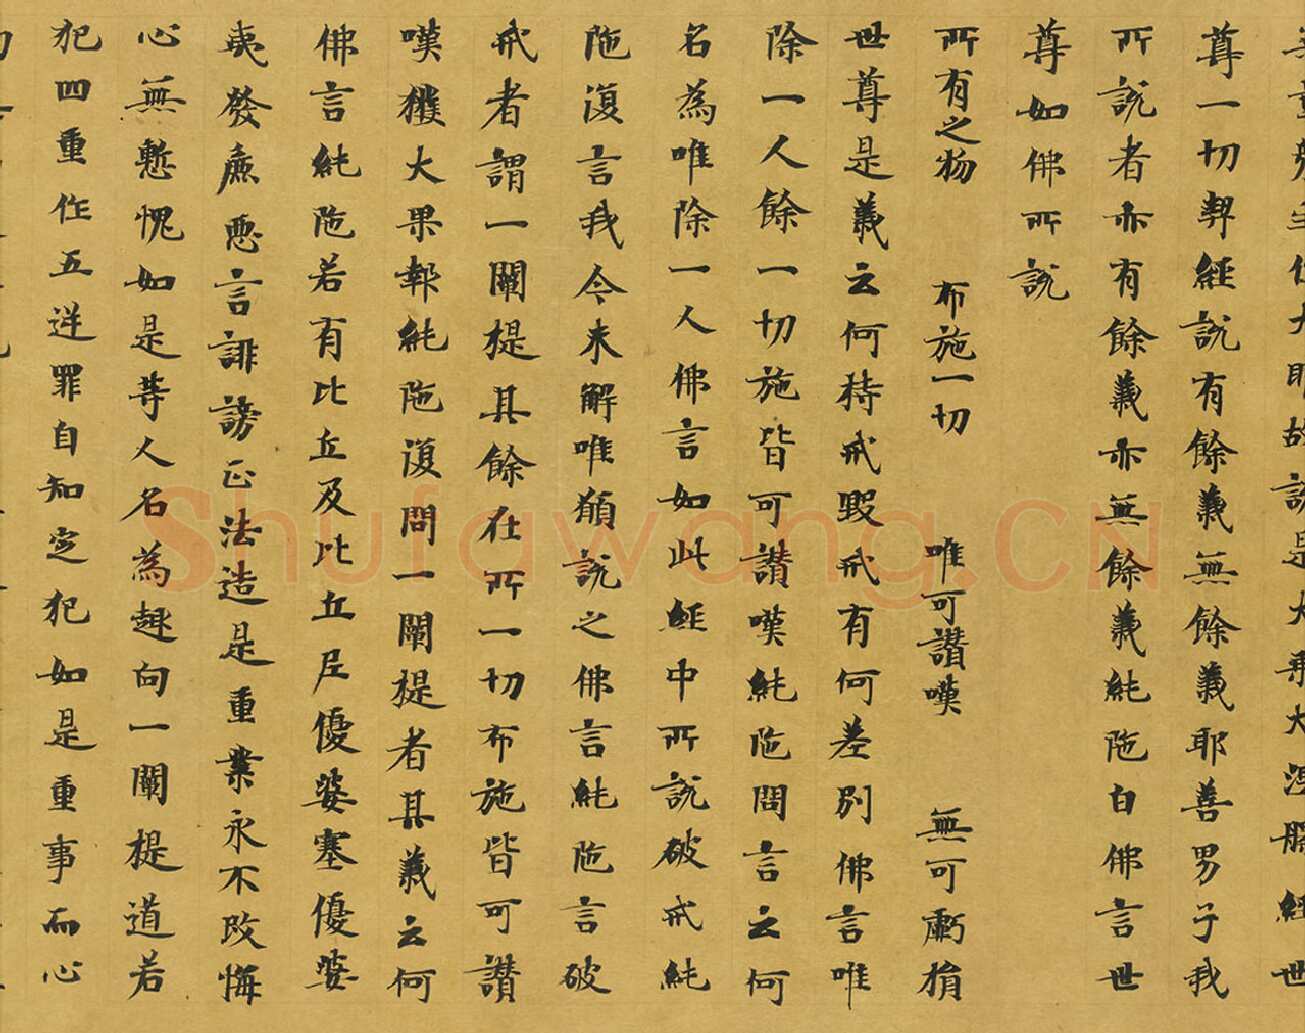 故說是大乘大涅槃經世
尊一切契經說有餘義無餘義耶善男子我
所說者亦有餘義亦無餘義純陀白佛言世
尊如佛所說
所有之物 布施一切 唯可讚嘆 無可虧損
世尊是義云何持戒毀戒有何差別佛言唯
除一人餘一切施皆可讚嘆純陀問言云何
名為唯除一人佛言如此經中所說破戒純
陀復言我今未解唯願說之佛言純陀言破
戒者謂一闡提其餘在所一切布施皆可讚
嘆獲大果報純陀復問一闡提者其義云何
佛言純陀若有比丘及比丘尼優婆塞優婆
夷發麁惡言誹謗正法造是重業永不改悔
心無慙愧如是等人名為趣向一闡提道若
犯四重作五逆罪自知定犯如是重事而心
Shufawang.CN